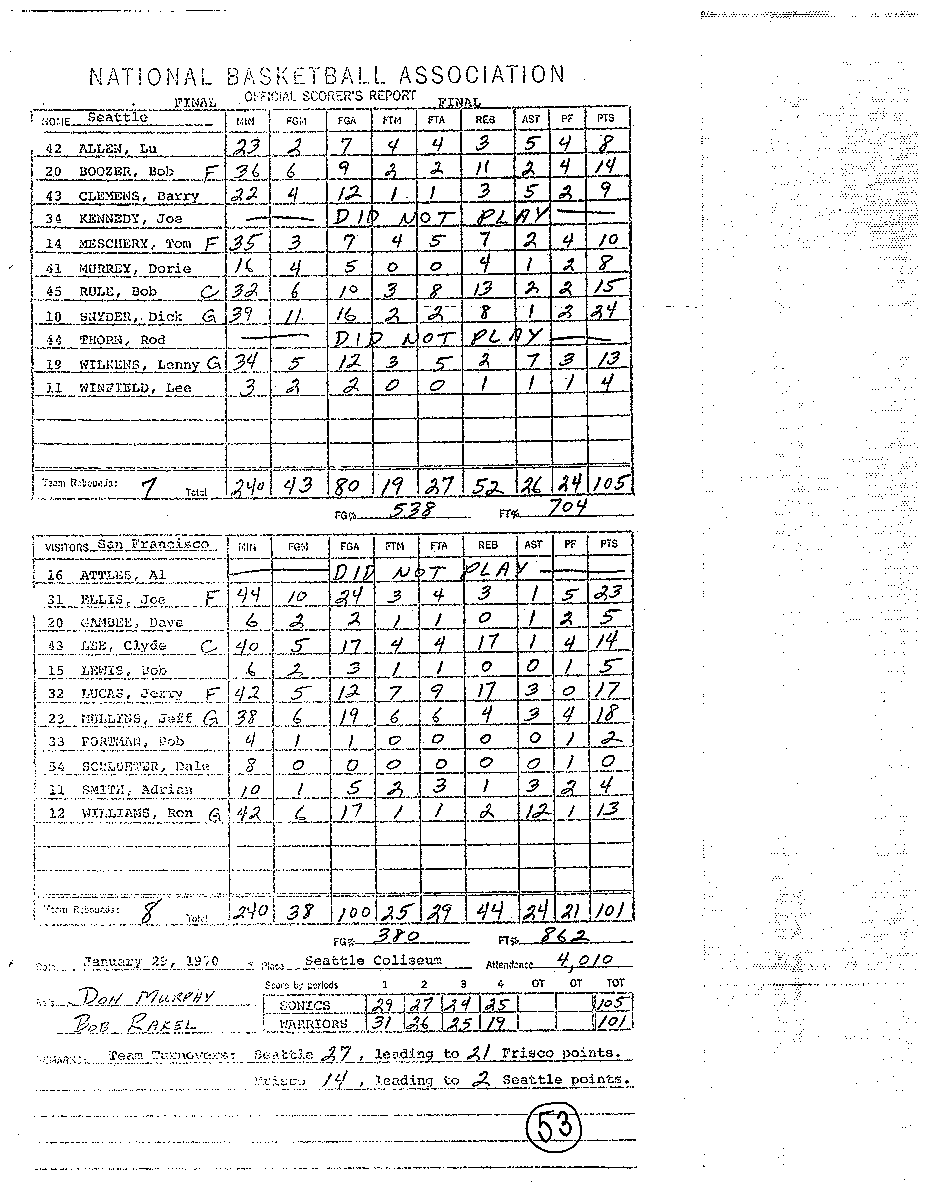 NATIONAL BASKETBALL ASSOCIATION
FINAL OFFICIAL SCORER'S REPORT FINAL
HOME Seattle MIN FGM FGA FTM FTA REB AST PF PTS
42 ALLEN, Lu 23 2 7 4 4 3 5 4 8
20 BOOZER, Bob F 36 6 9 2 2 11 2 4 14
43 CLEMENS, Barry 22 4 12 1 1 3 5 2 9
34 KENNEDY, Joe DID NOT PLAY
14 MESCHERY, Tom F 35 3 7 4 5 7 2 4 10
41 MURREY, Dorie 16 4 5 0 0 4 1 2 8
45 RULE, Bob C 32 6 10 3 8 13 2 2 15
10 SNYDER, Dick G 39 11 16 2 2 8 1 2 24
44 THORN, Rod DID NOT PLAY
19 WILKENS, Lenny G 34 5 12 3 5 2 7 3 13
11 WINFIELD, Lee 3 2 2 0 0 1 1 1 4
Team Rebounds: 7 Total 240 43 80 19 27 52 26 24 105
FG% 538 FT% 704
VISITORS San Francisco MIN FGM FGA FTM FTA REB AST PF PTS
16 ATTLES, Al DID NOT PLAY
31 ELLIS, Joe F 44 10 24 3 4 3 1 5 23
20 GAMBEE, Dave 6 2 2 1 1 0 1 2 5
43 LEE, Clyde C 40 5 17 4 4 17 1 4 14
15 LEWIS, Bob 6 2 3 1 1 0 0 1 5
32 LUCAS, Jerry F 42 5 12 7 9 17 3 0 17
23 MULLINS, Jeff G 38 6 19 6 6 4 3 4 18
33 PORTMAN, Bob 4 1 1 0 0 0 0 1 2
34 SCHLUETER, Dale 8 0 0 0 0 0 0 1 0
11 SMITH, Adrian 10 1 5 2 3 1 3 2 4
12 WILLIAMS, Ron G 42 6 17 1 1 2 12 1 13
Team Rebounds: 8 Total 240 38 100 25 29 44 24 21 101
FG% 380 FT% 862
Date January 29, 1970 Place Seattle Coliseum Attendance 4,010
Score by periods 1 2 3 4 OT OT TOT
DON MURPHY SONICS 29 27 24 25 105
BOB RAKEL WARRIORS 31 26 25 19 101
REMARKS: Team Turnovers: Seattle 27, leading to 21 Frisco points.
Frisco 14, leading to 2 Seattle points.
53